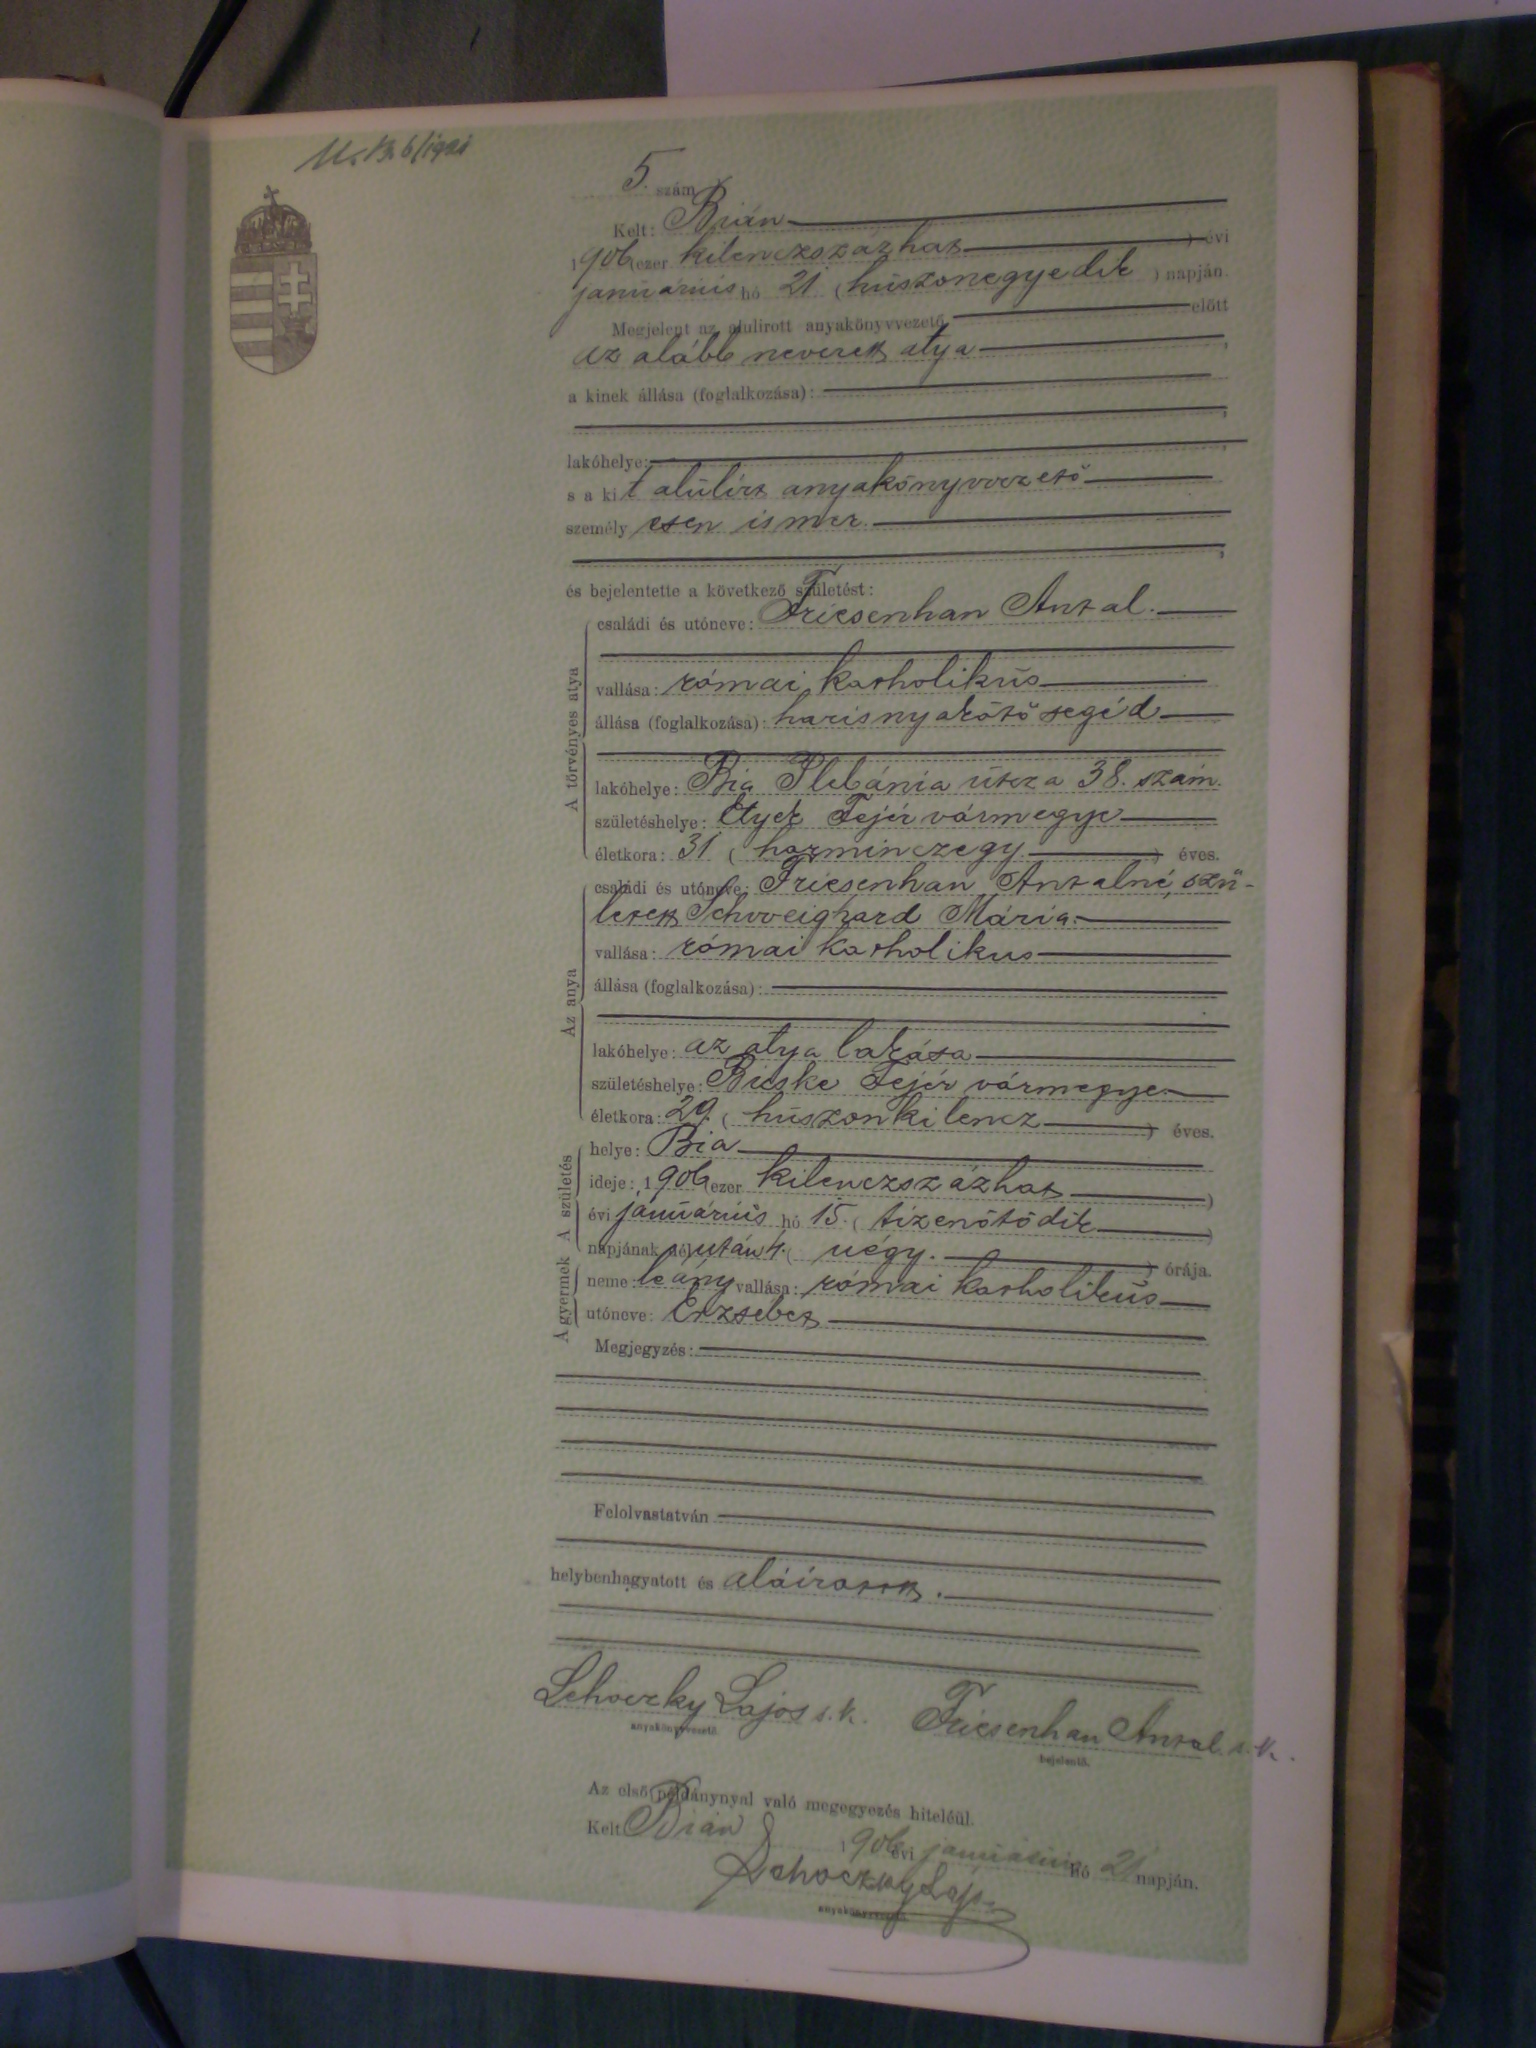 5. szám
Kelt: Bián
1906 (ezer kilenczszázhat ) évi
januárius hó 21 ( huszonegyedik ) napján.
Megjelent az alulirott anyakönyvvezető előtt
az alább nevezett atya ,
a kinek állása (foglalkozása):
lakóhelye:
s a kit alulírt anyakönyvvezető
személyesen ismer.
és bejelentette a következő születést:
A törvényes atya
családi és utóneve: Friesenhan Antal.
vallása: római katholikus
állása (foglalkozása): harisnyakötő segéd
lakóhelye: Bia Plebánia útcza 38. szám.
születéshelye: Etyek Fejér vármegye
életkora: 31 ( harminczegy ) éves.
Az anya
családi és utóneve: Friesenhan Antalné, szü-
letett Schveighard Mária.
vallása: római katholikus
állása (foglalkozása):
lakóhelye: az atya lakása
születéshelye: Bicske Fejér vármegye.
életkora: 29. ( huszonkilencz ) éves.
A születés
helye: Bia
ideje: 1906 (ezer kilenczszázhat )
évi januárius hó 15. ( tizenötödik )
napjának délután 4. ( négy. ) órája.
A gyermek
neme: leány vallása: római katholikus
utóneve: Erzsebet
Megjegyzés:
Felolvastatván
helybenhagyatott és aláíratott.
Lehoczky Lajos s. k. Friesenhan Antal s. k.
anyakönyvvezető. bejelentő.
Az első példánynyal való megegyezés hiteléül.
Kelt Bián 1906 évi januárius hó 21 napján.
Lehoczky Lajos
anyakönyvvezető.